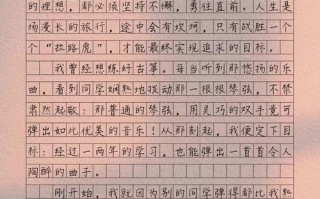 的理想，都必须坚持不懈，勇往直前。人生是
场漫长的旅行，途中会有坎坷，只有战胜一个
个“拦路虎”，才能最终实现追求的目标。
我曾经想练好古筝。每当听到那悠扬的乐
曲，看到同学娴熟地拨动那一根根琴弦，不禁
肃然起敬：那普通的琴弦，用灵巧的双手竟可
弹出如此优美的音乐！从那刻起，我便定下目
标：经过一两年的学习，也能弹出一首首令人
陶醉的曲子。
刚开始，我就因为别的同学弹得都比我熟